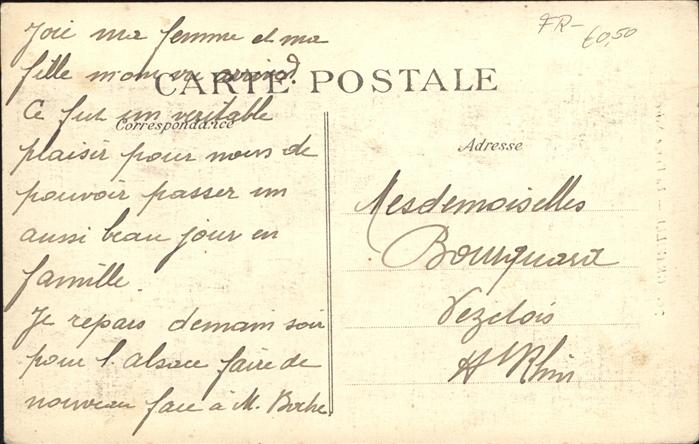 FR-
60,50
Joie ma femme et ma
fille m'ont vu arrivé.
CARTE POSTALE
Ce fut un veritable
Correspondance
plaisir pour nous de
pouvoir passer un
aussi beau jour en
famille.
Je repars demain soir
pour l'alsace faire de
nouveau face à M. Boche
Adresse
Mesdemoiselles
Bourquard
Vezelois
Ht Rhin